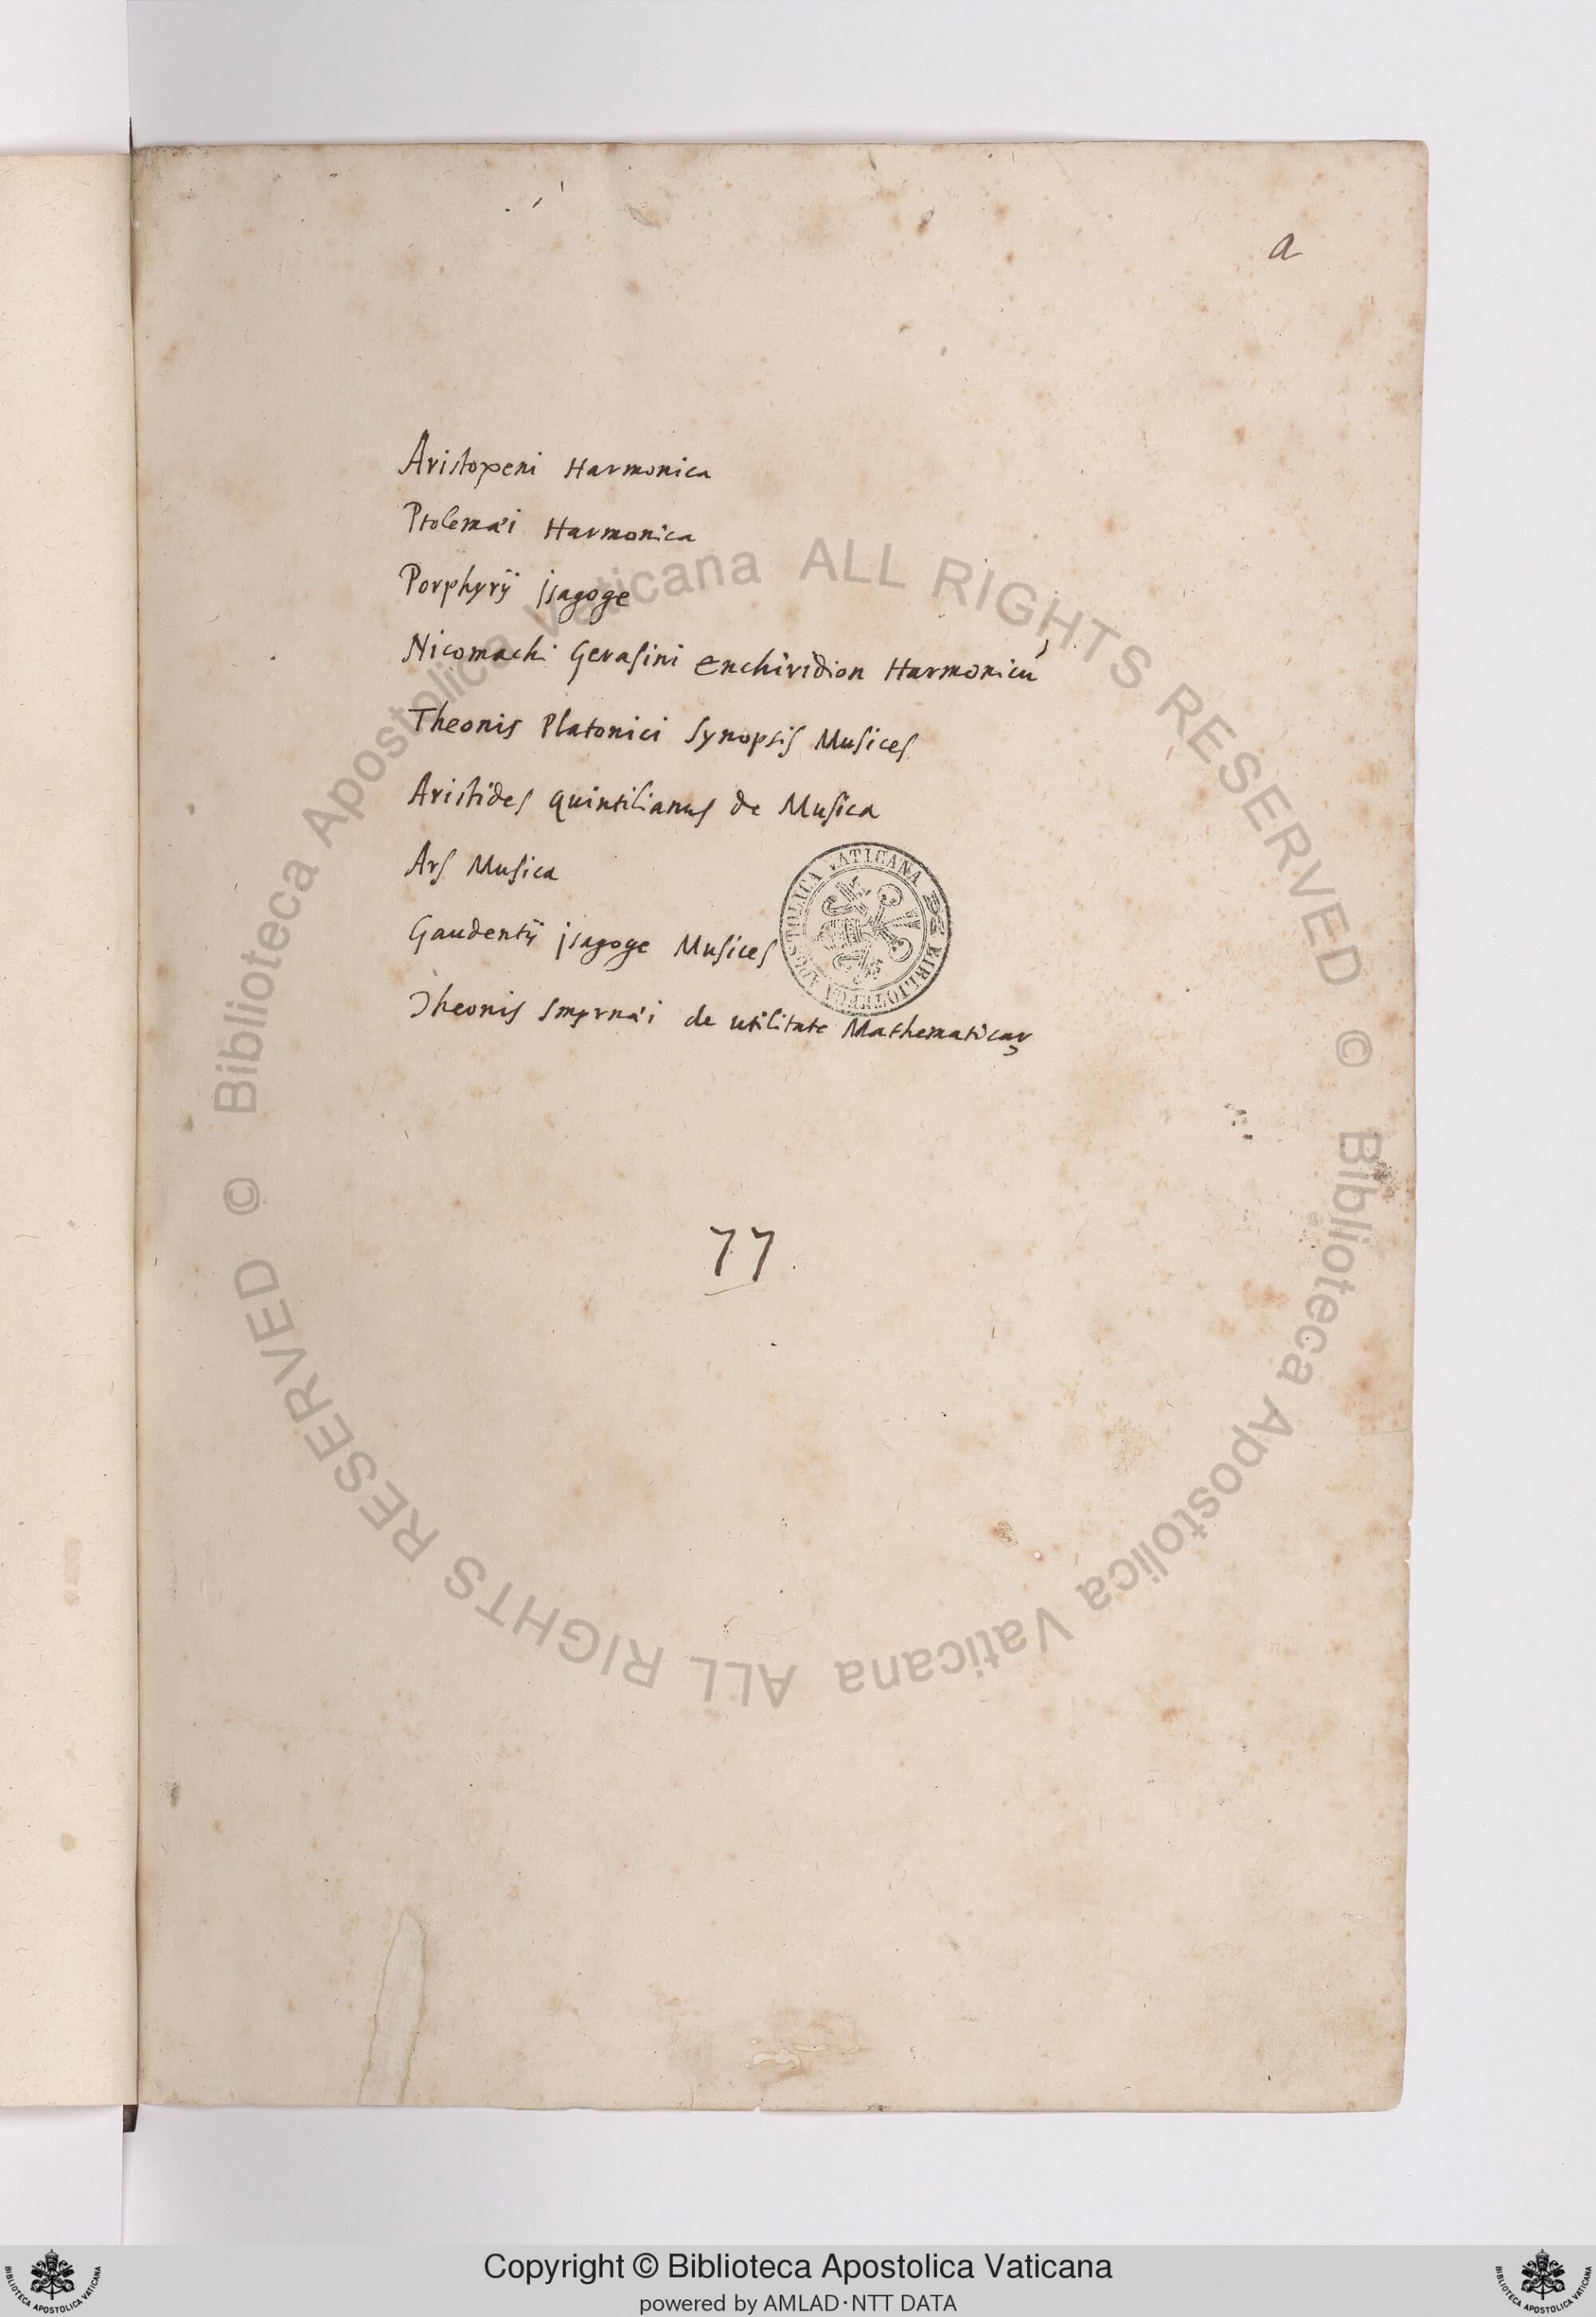 a
Aristoxeni Harmonica
Ptolemæi Harmonica
Porphyrij jsagoge
Nicomachi Gerasini enchiridion Harmonicu͂
Theonis Platonici Synopsis Musices
Aristides quintilianus de Musica
Ars Musica
Gaudentij jsagoge Musices
Theonis Smyrnæi de utilitate Mathematicaꝝ
BIBLIOTECA APOSTOLICA VATICANA
77
© Biblioteca Apostolica Vaticana ALL RIGHTS RESERVED
© Biblioteca Apostolica Vaticana ALL RIGHTS RESERVED
Copyright © Biblioteca Apostolica Vaticana
powered by AMLAD·NTT DATA
BIBLIOTECA APOSTOLICA VATICANA
BIBLIOTECA APOSTOLICA VATICANA